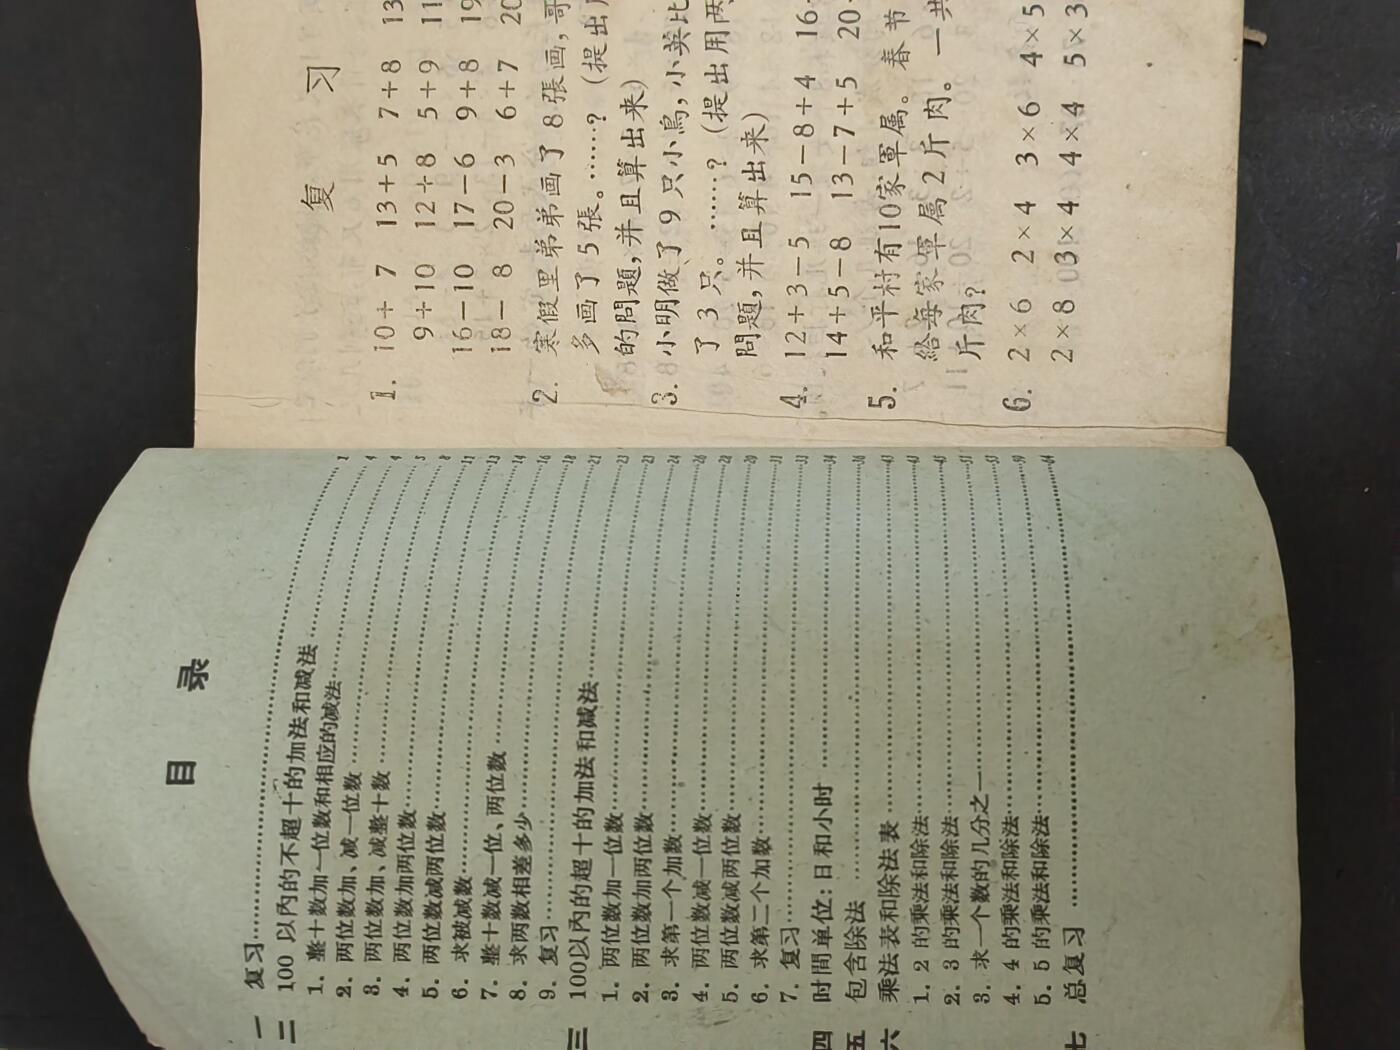 目 录
一 复习……1
二 100 以內的不超十的加法和减法
1. 整十数加一位数和相应的减法……4
2. 两位数加、减一位数……4
3. 两位数加、减整十数……5
4. 两位数加两位数……8
5. 两位数减两位数……11
6. 求被减数……13
7. 整十数减一位、两位数……14
8. 求两数相差多少……16
9. 复习……18
三 100以內的超十的加法和减法……21
1. 两位数加一位数……23
2. 两位数加两位数……23
3. 求第一个加数……24
4. 两位数减一位数……26
5. 两位数减两位数……28
6. 求第二个加数……
7. 复习……31
四 时間单位:日和小时……34
五 包含除法……36
六 乘法表和除法表……43
1. 2 的乘法和除法……43
2. 3 的乘法和除法……45
3. 求一个数的几分之一……51
4. 4 的乘法和除法……57
5. 5 的乘法和除法……59
七 总复习……64
复 习
1. 10+ 7 13+5 7+8 13
9+10 12+8 5+9 11
16-10 17-6 9+8 19
18- 8 20-3 6+7 20
2. 寒假里弟弟画了 8 張画,哥
多画了 5 張。……?(提出
的問題,并且算出来)
3. 小明做了 9 只小鳥,小英比
了 3 只。……?(提出用两
問題,并且算出来)
4. 12+3-5 15-8+4 16
14+5-8 13-7+5 20
5. 和平村有10家軍属。春节
給每家軍属2斤肉。一共
斤肉?
6. 2×6 2×4 3×6 4×5
2×8 3×4 4×4 5×3